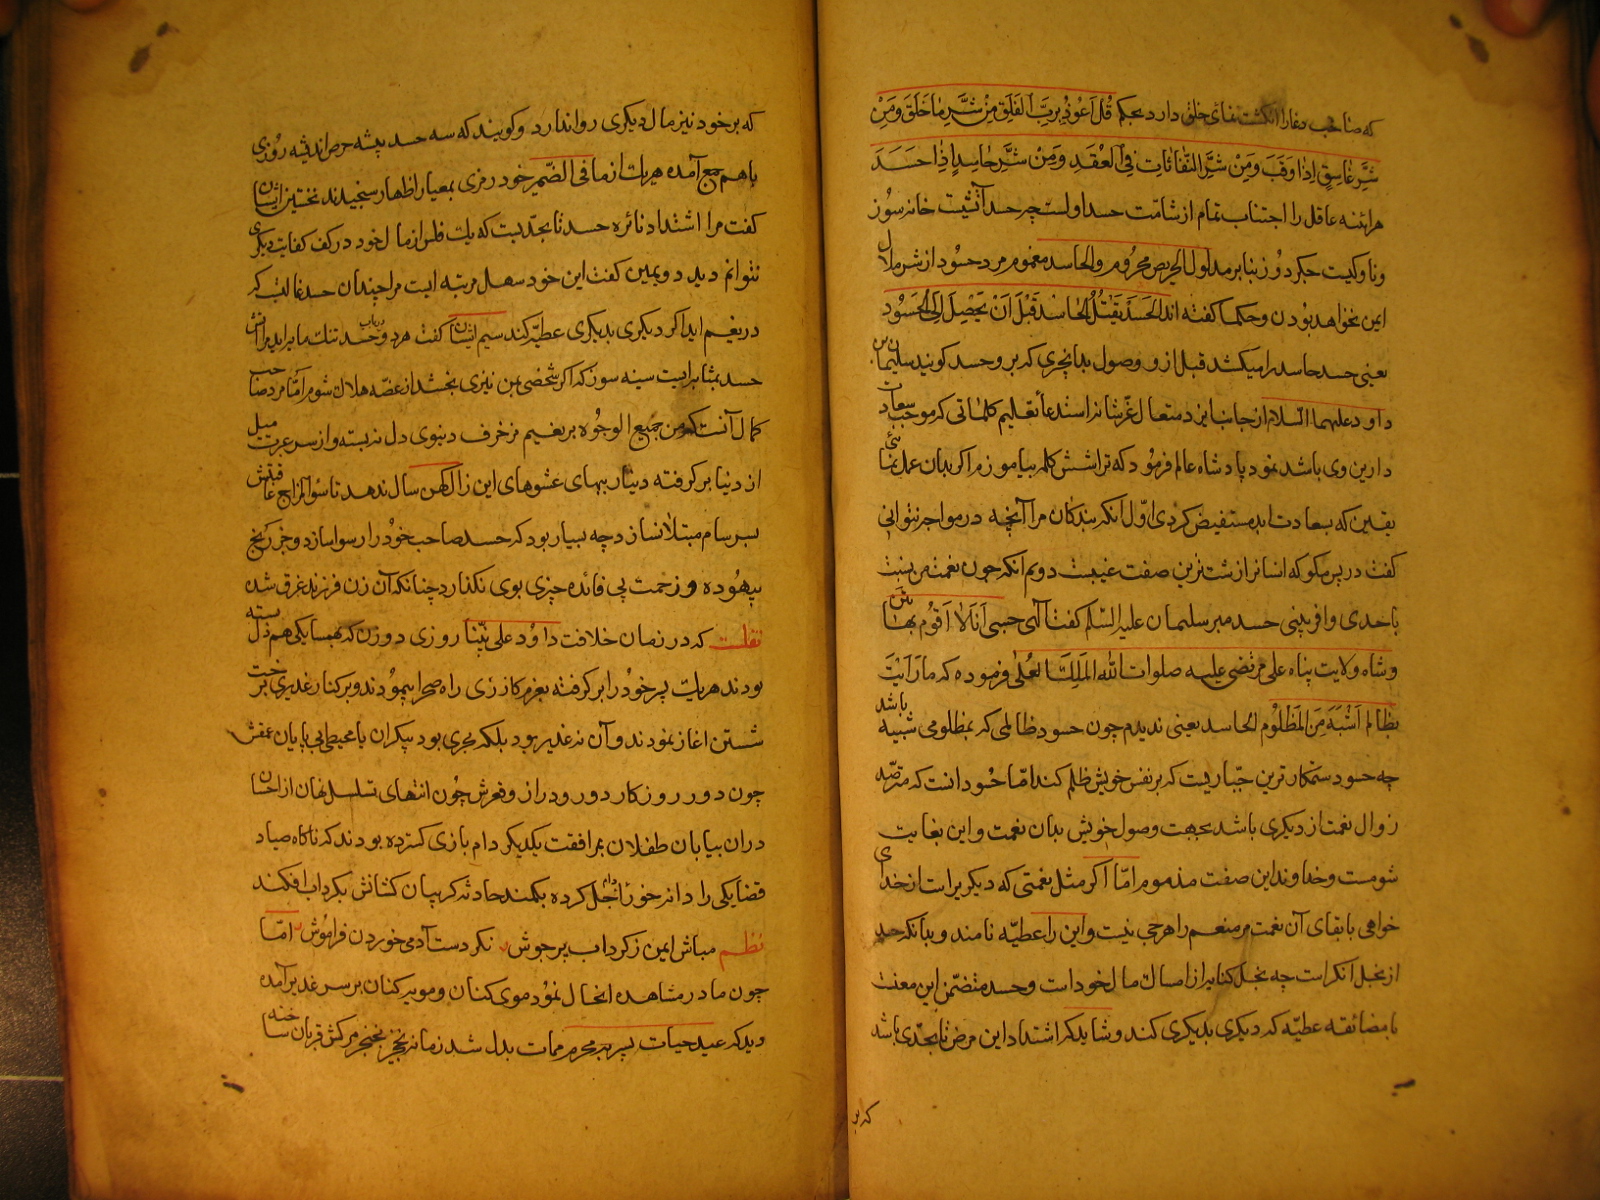 که صاحب دغا را انکشت‌نمای خلق دارد بحکم قُل اَعُوذُ بِرَبِّ الفَلَقِ مِنْ شَرِّ مٰا خَلَقَ وَمِنْ
شَرِّ غٰاسِقٍ اِذٰا وَقَبَ وَمِنْ شَرِّ النَّفّٰاثٰاتِ فِی الْعُقَدِ وَمِنْ شَرِّ حٰاسِدٍ اِذٰا حَسَدَ
هرائنه عاقل را اجتناب تمام از شامّت حسد اولیست چه حسد آتشیست خانه سوز
و ناوکیست جکردوز بنابر مدلول الحریص محروم والحاسد مغموم مرد حسود از شر ملال
ایمن نخواهد بودن و حکما کفته اند الحَسَدُ یَقْتُلُ الحٰاسدَ قَبْلَ اَنْ یَصِلَ اِلَی الْحَسُود
یعنی حسد حاسد را میکشد قبل از وصول بدانچزی که برو حسد کویند سلیمان بن
داود علیهما السّلام از جانب ایزد متعال عزّ شانه استدعاء تعلیم کلماتی که موجب سعادت
دارین وی باشد نمود پادشاه عالم فرمود که ترا شش کلمه بیاموزم اکر بدان عمل نمائی
یقین که بسعادت ابد مستفیض کردی اوّل انکه بندکان مرا آنچه در مواجه نتوانی
کفت در پس مکو که انسانرا زشت‌ترین صفت غیبت دویم آنکه چون نعمت من بنسبت
باحدی وافر بینی حسد مبر سلیمان علیه السّلم کفت الٰهی حسبی اَنَا لٰا اَقُومُ بهٰاتَیْن
و شاه ولایت پناه علی مرتضی علیه صلوات الله المَلِک العُلٰی فرموده که ما رَاَیْتُ
بظالم اَشْبَهَ مِنَ المَظْلُوم الحاسد یعنی ندیدم چون حسود ظالمی که بمظلومی شبیه باشد
چه حسود ستمکارترین جبّاریست که بر نفس خویش ظلم کند امّا حسود انست که مترصّد
زوال نعمت از دیکری باشد بجهت وصول خویش بدان نعمت و این بغایت
شومست و خداوند این صفت مذموم امّا اکر مثل نعمتی که دیکریراست از خدای
خواهی با بقای آن نعمت مر منعم را هرجی نیست و این را عطیّه نامند و بدانکه حسد
از بخل انکراست چه بخل کنایه از امساک مال خود است و حسد متضمّن این معنیست
با مضائقه عطیّه که دیکری بدیکری کند و شاید که اشتداد این مرض تا بحدّی باشد
که بر
که بر خود نیز مال دیکری روا ندارد و کویند که سه حسد پیشه حرص اندیشه روزی
باهم جمع آمده هریک از ما فی الضّمیر خود رمزی بمعیار اظهار سنجیدند نخستین ایشان
کفت مرا اشتداد نائره حسد تا بحدّیست که یک فلس از مال خود در کف کفایت دیکری
نتوانم دید دویمین کفت این خود سهل مرتبه ایست مرا چندان حسد غالبست که
دریغم اید اکر دیکری بدیکری عطیّه کند سیم ایشان کفت هر دو حسد تنک مایه اید مرا آتش
حسد بمثابه ایست سینه سوز که اکر شخصی بمن نیزی بخشد از غصّه هلاک شوم امّا مرد صاحب
کمال آنست که من جمیع الوجوه بر نعیم مزخرف دنیوی دل نه بسته و از سر عبرت میل
از دنیا برکرفته دینار بهای عشوهای این زال کهن سال ندهد تا سوء المزاج عاقبتش
بسرسام مبتلا نسازد چه بسیار بود که حسد صاحب خود را رسوا سازد و جز رنج
بیهوده و زحمت بی فائده چیزی بوی نکذارد چنانکه آن زن فرزند غرق شده
نقلست که در زمان خلافت داود علی نبیّنا روزی دو زن که بهمسایکی هم دل بسته
بودند هریک پسر خود را برکرفته بعزم کازری راه صحرا پیمودند و بر کنار غدیری رخت
شستن اغاز نمودند و آن نه غدیر بود بلکه بحری بود بیکران یا محیطی بی پایان عمقش
چون دور روزکار دور و دراز و قعرش چون انتهای تسلسل نهان از احسان
دران بیابان طفلان بمرافقت یکدیکر دام بازی کسترده بودند که ناکاه صیاد
قضا یکی را دانه خور دام اجل کرده بکمند حادثه کریبان کشانش بکرداب افکند
نظم مباش ایمن ز کرداب پرجوش نکردست آدمی خوردن فراموش امّا
چون مادر مشاهده انحال نمود موی کنان و مویه کنان بر سر غدیر آمده
و ید که عید حیات پسر بمحرم ممات بدل شد زمانه بتیز خنجر مرکش قربان ساخته